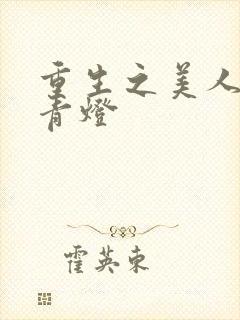 重生之美人
青燈
霍英東